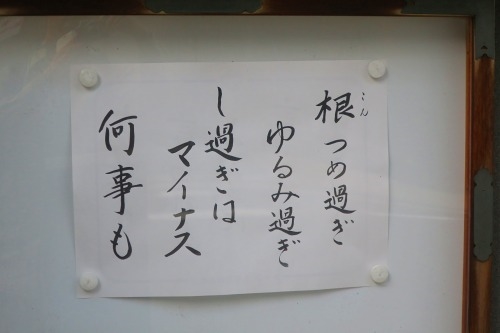 根つめ過ぎ
こん
ゆるみ過ぎ
し過ぎは
マイナス
何事も